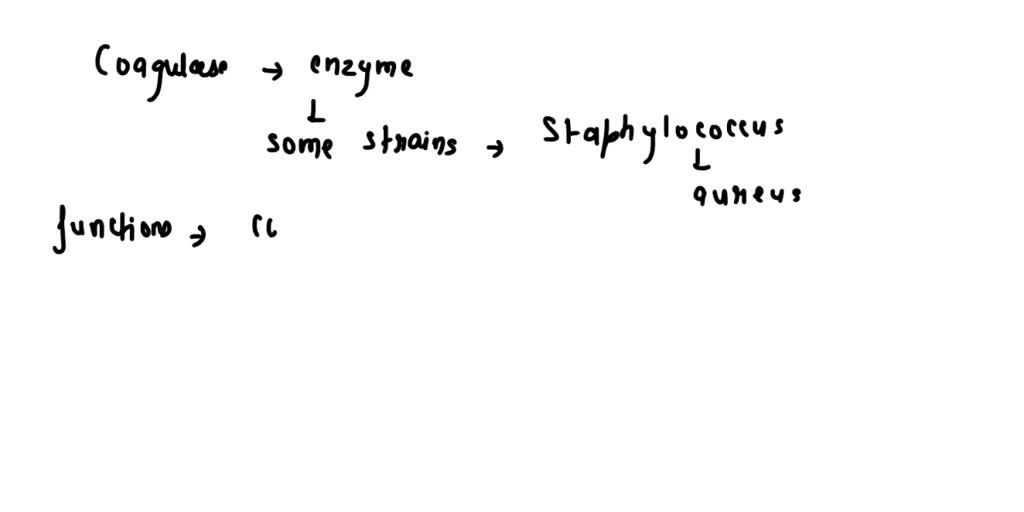 Coagulase → enzyme
↓
some strains → Staphylococcus
↓
aureus
functions →